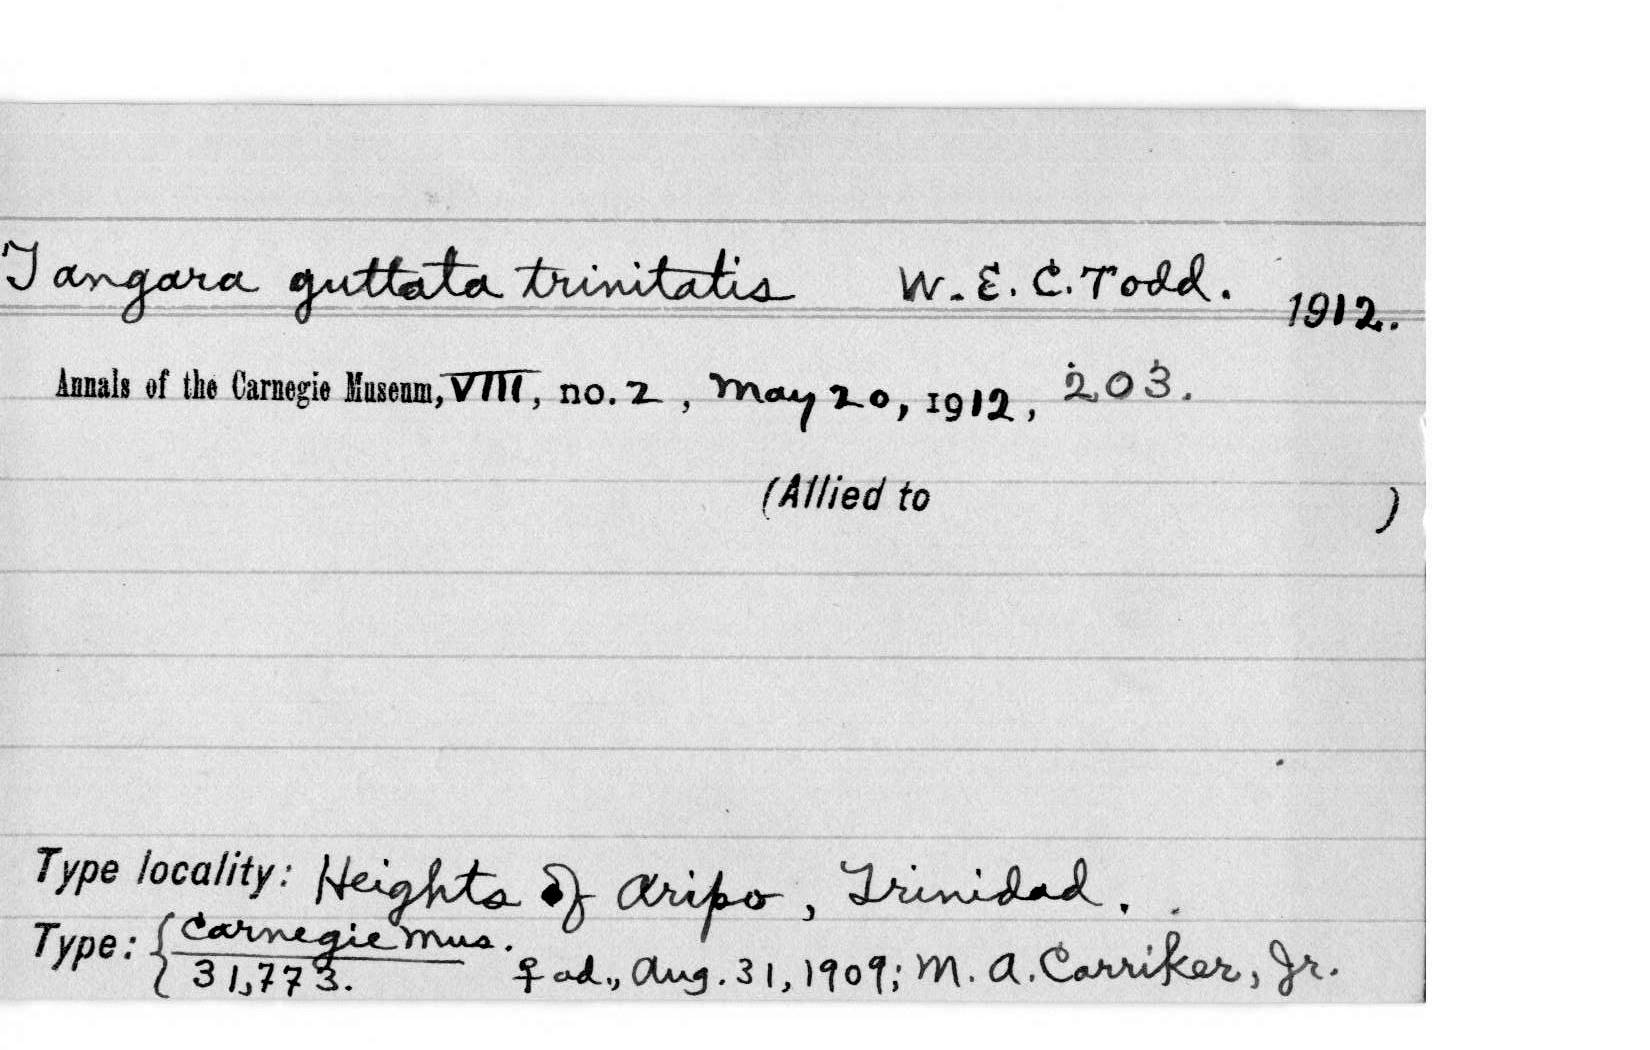 Tangara guttata trinitatis W. E. C. Todd. 1912.
Annals of the Carnegie Museum, VIII, no. 2, May 20, 1912, 203.
(Allied to )
Type locality: Heights of Aripo, Trinidad.
Type: { Carnegie Mus.
31,773. ♀ ad., Aug. 31, 1909; M. A. Carriker, Jr.